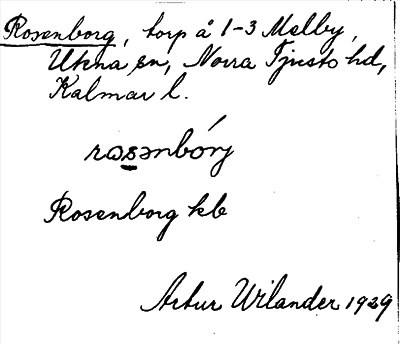 Rosenborg, torp å 1-3 Melby,
Ukna sn, Norra Tjusts hd,
Kalmar l.
rosənbórj
Rosenborg kb
Artur Wilander 1929